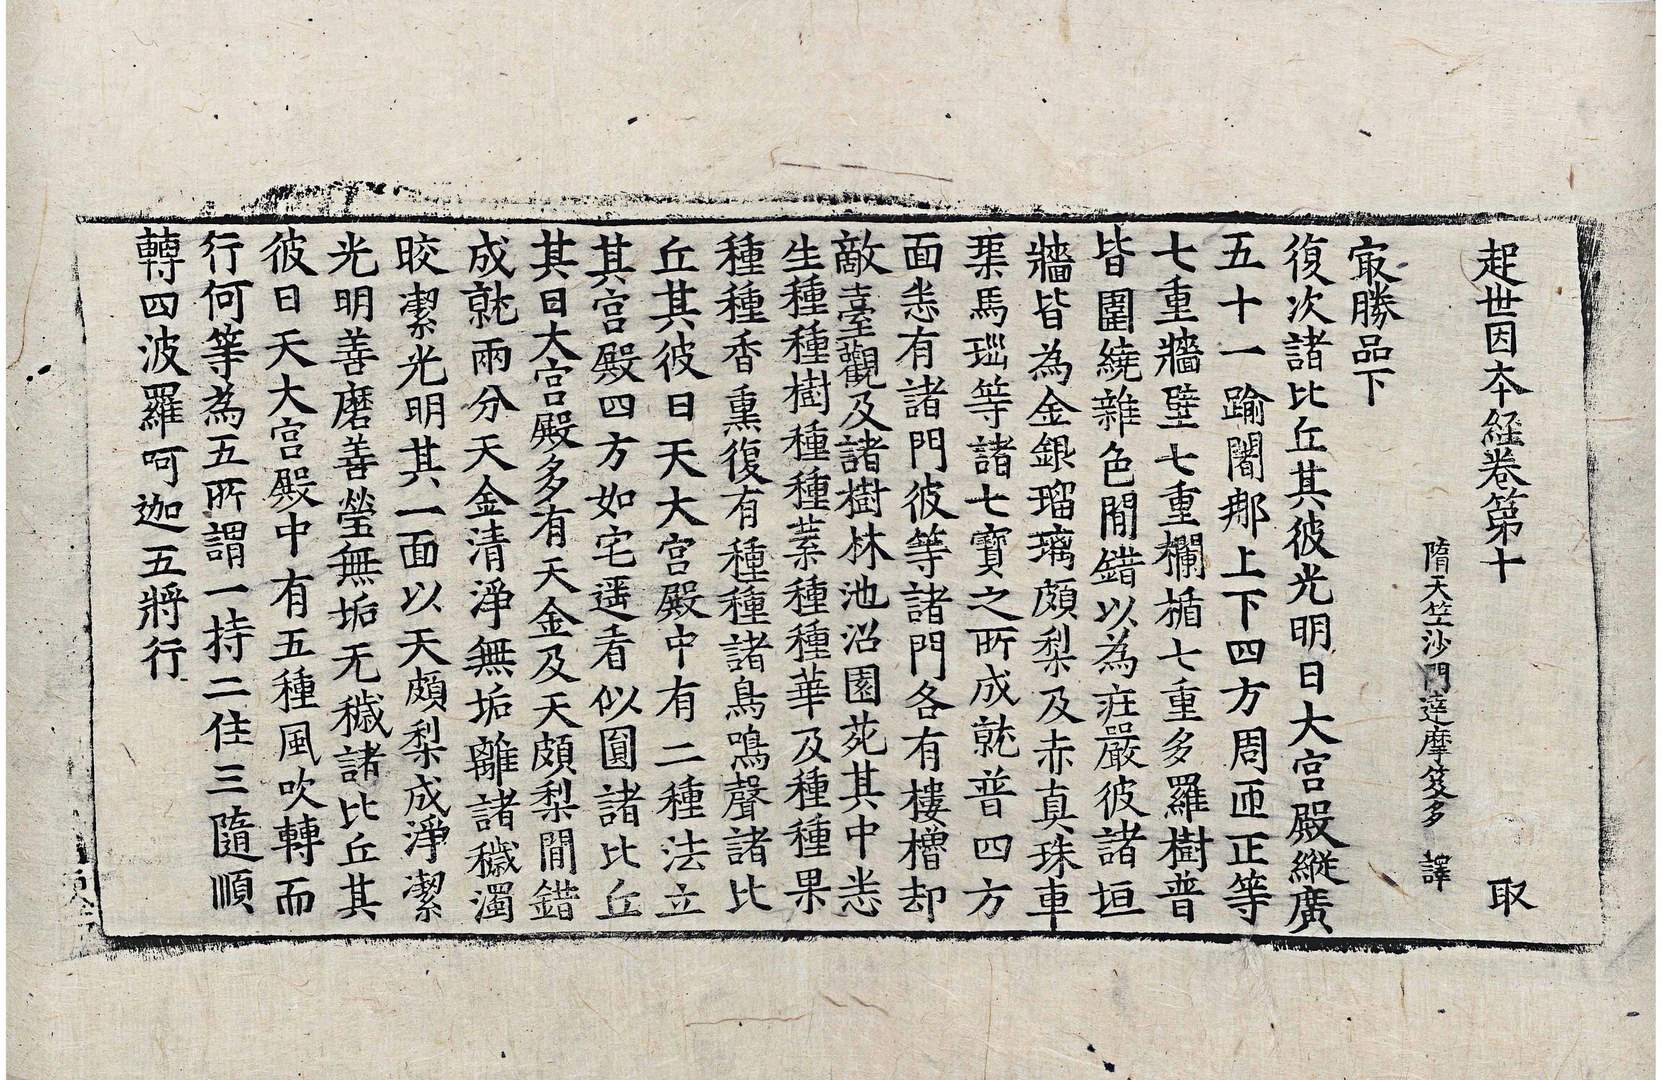 起世因本經卷第十　取
隋天竺沙門達摩笈多　譯
㝡勝品下
復次諸比丘其彼光明日大宮殿縱廣
五十一踰闍那上下四方周匝正等
七重牆壁七重欄楯七重多羅樹普
皆圍繞雜色間錯以為莊嚴彼諸垣
牆皆為金銀瑠璃頗梨及赤真珠車
璖馬瑙等諸七寶之所成就普四方
面悉有諸門彼等諸門各有樓櫓却
敵臺觀及諸樹林池沼園苑其中悉
生種種樹種種葉種種華及種種果
種種香熏復有種種諸鳥鳴聲諸比
丘其彼日天大宮殿中有二種法立
其宮殿四方如宅遥看似圓諸比丘
其日大宮殿多有天金及天頗梨間錯
成就兩分天金清淨無垢離諸穢濁
皎潔光明其一面以天頗梨成淨潔
光明善磨善瑩無垢无穢諸比丘其
彼日天大宮殿中有五種風吹轉而
行何等為五所謂一持二住三隨順
轉四波羅呵迦五將行